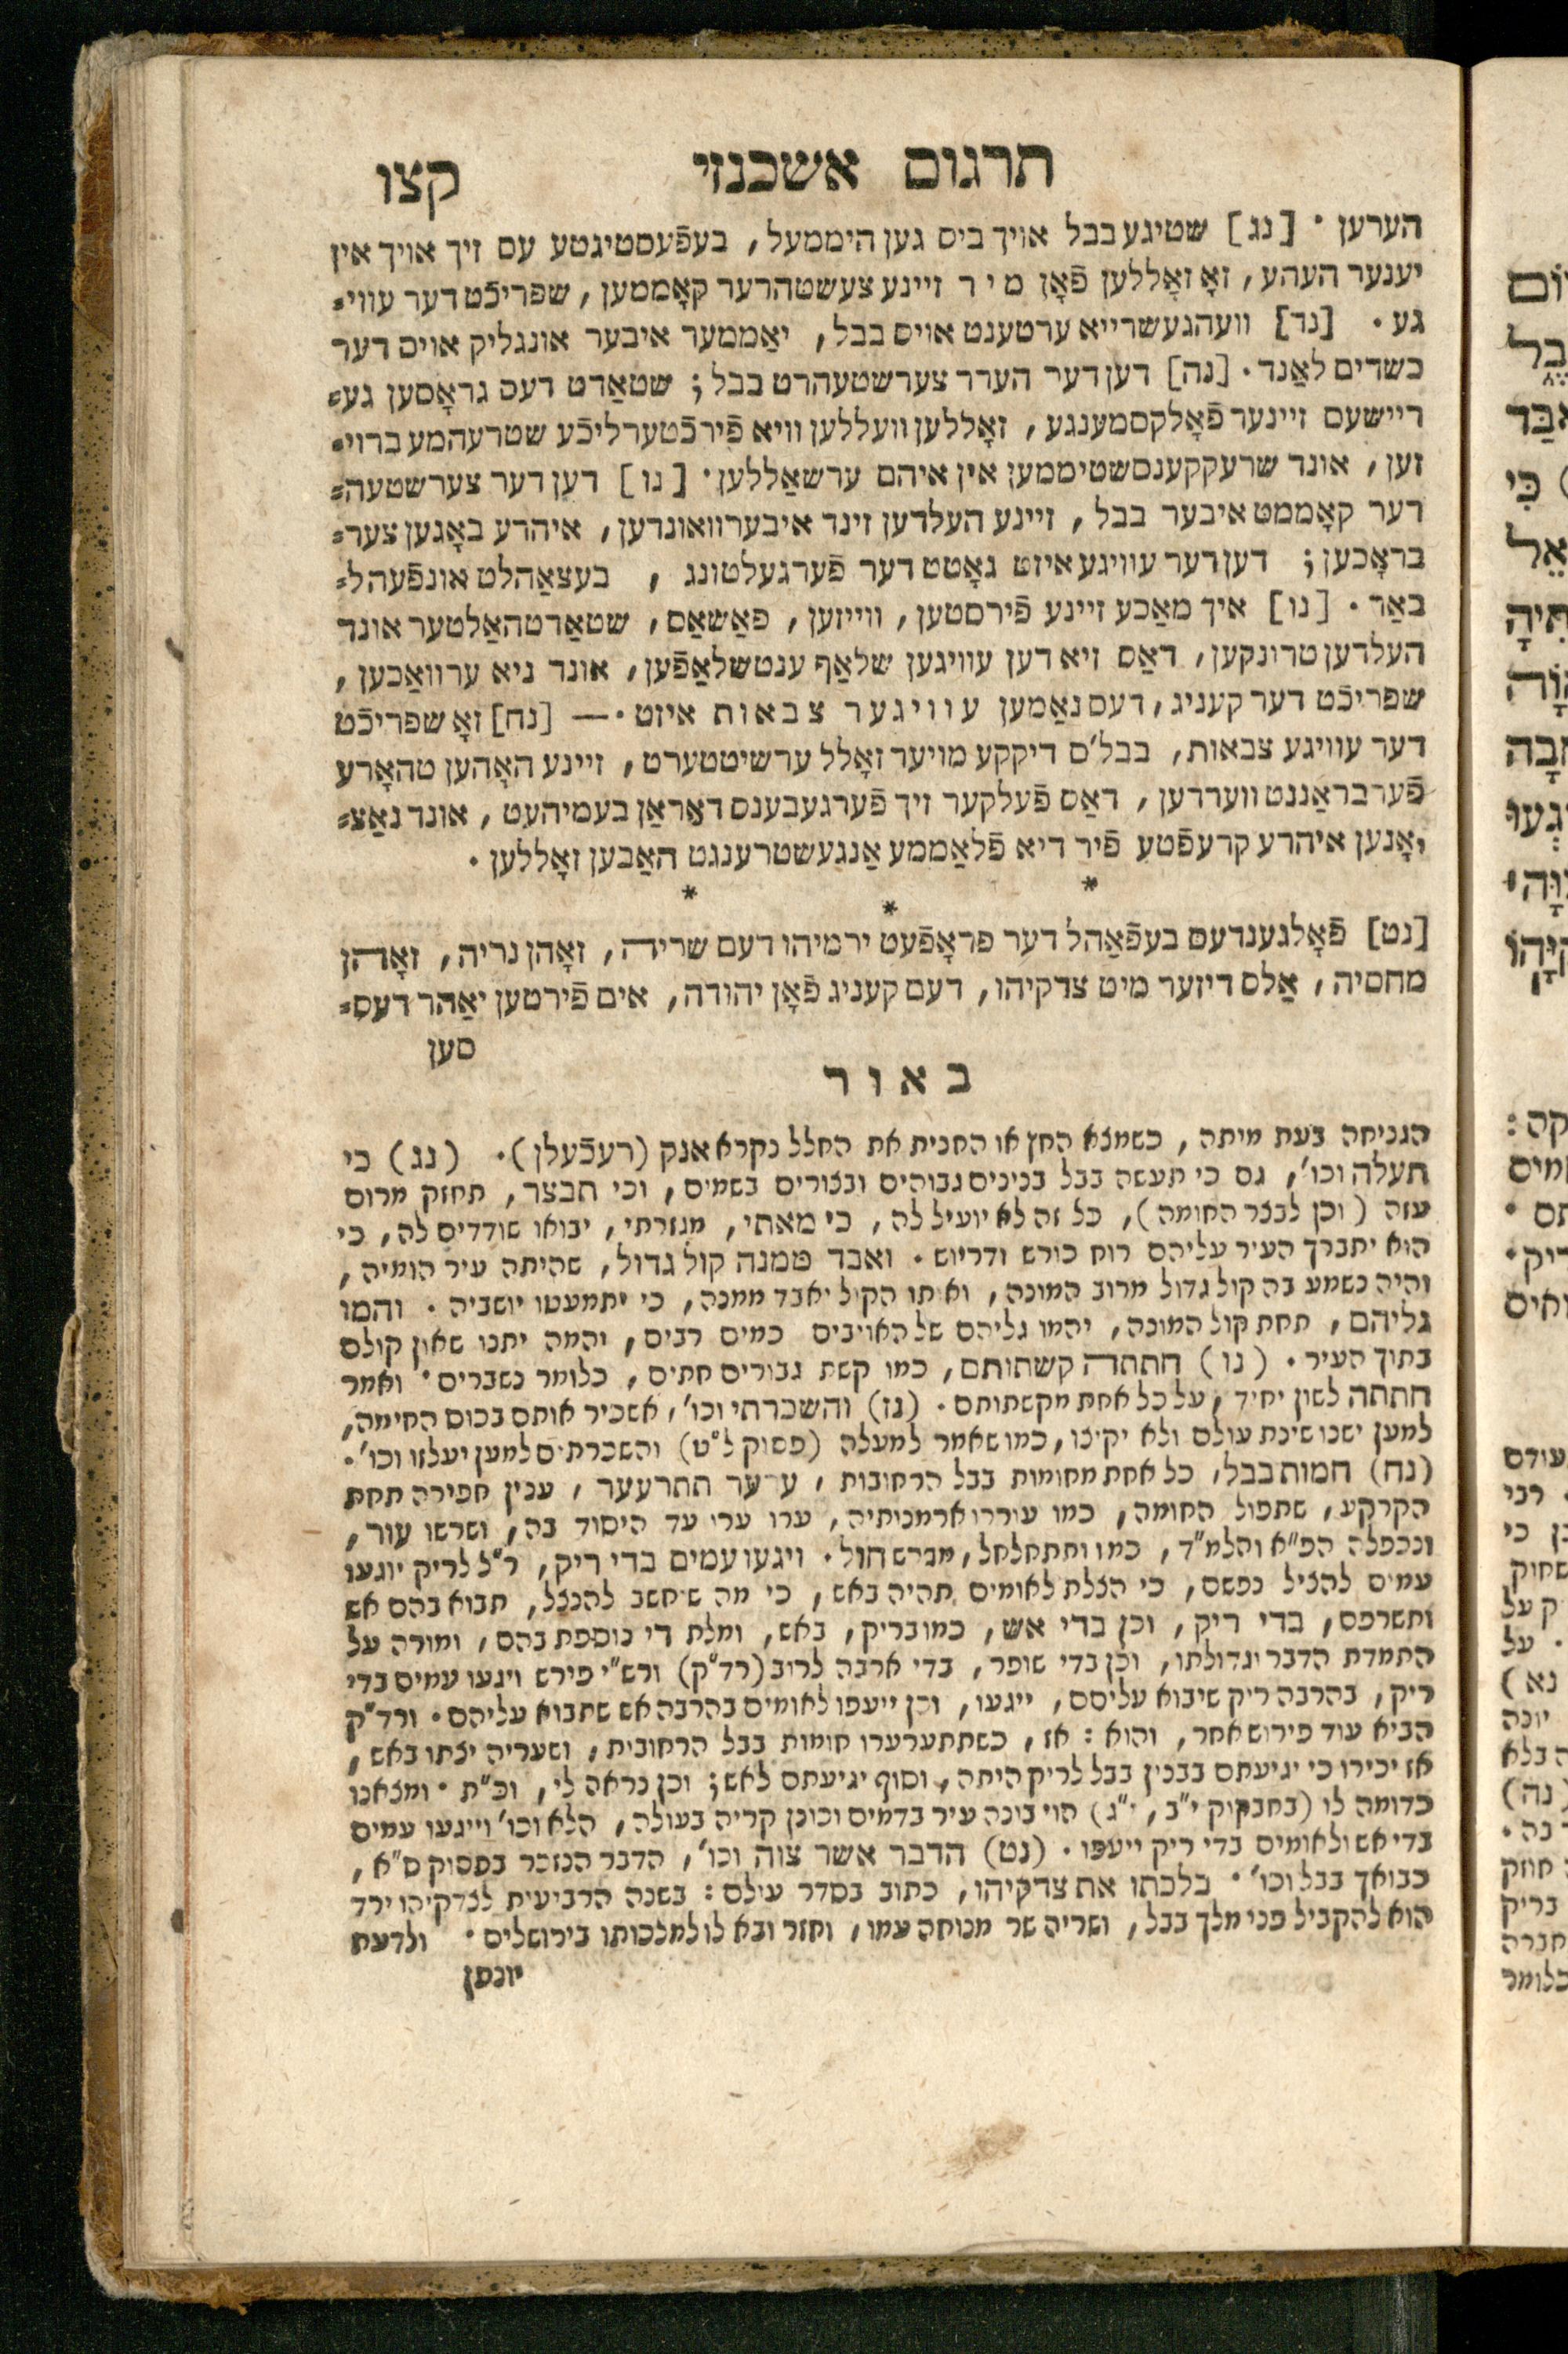 תרגום אשכנזי קצו
הערען · [נג] שטיגע בבל אויך ביס גען היממעל, בעפֿעסטיגטע עס זיך אויך אין
יענער העהע, זאָ זאָללען פֿאָן מ י ר זיינע צעשטהרער קאָממען, שפריכֿט דער עווי⸗
גע · [נד] וועהגעשרייא ערטענט אויס בבל, יאַממער איבער אונגליק אויס דער
כשדים לאַנד · [נה] דען דער הערר צערשטעהרט בבל; שטאַדט דעס גראָסען גע⸗
ריישעס זיינער פֿאָלקסמענגע, זאָללען וועללען וויא פֿירכֿטערליכֿע שטרעהמע ברוי⸗
זען, אונד שרעקקענסשטיממען אין איהם ערשאַללען · [נו] דען דער צערשטעה⸗
דער קאָממט איבער בבל, זיינע העלדען זינד איבערוואונדען, איהרע באָגען צער⸗
בראָכען; דען דער עוויגע איזט גאָטט דער פֿערגעלטונג, בעצאַהלט אונפֿעהל⸗
באַר · [נו] איך מאַכע זיינע פֿירסטען, ווייזען, פאַשאַס, שטאַדטהאַלטער אונד
העלדען טרונקען, דאַס זיא דען עוויגען שלאַף ענטשלאַפֿען, אונד ניא ערוואַכען,
שפריכֿט דער קעניג, דעס נאַמען עוויגער צבאות איזט · — [נח] זאָ שפריכֿט
דער עוויגע צבאות, בבל'ס דיקקע מויער זאָלל ערשיטטערט, זיינע האָהען טהאָרע
פֿערבראַננט ווערדען, דאַס פֿעלקער זיך פֿערגעבענס דאַראַן בעמיהעט, אונד נאַצ⸗
יאָנען איהרע קרעפֿטע פֿיר דיא פֿלאַממע אַנגעשטרענגט האַבען זאָללען ·
* * *
[נט] פֿאָלגענדעס בעפֿאַהל דער פראָפֿעט ירמיהו דעם שריה, זאָהן נריה, זאָהן
מחסיה, אַלס דיזער מיט צדקיהו, דעם קעניג פֿאָן יהודה, אים פֿירטען יאַהר דעס⸗
סען
ב א ו ר
הגניחה בעת מיתה, כשמצא החץ או החנית את החלל נקרא אנק (רעכֿעלן) · (נג) כי
תעלה וכו', גם כי תעשה בבל בנינים גבוהים ובצורים בשמים, וכי תבצר, תחזק מרום
עזה (וכן לבצר החומה), כל זה לא יועיל לה, כי מאתי, מגזרתי, יבואו שודדים לה, כי
הוא יתברך העיר עליהם רוח כורש ודריוש · ואבד ממנה קול גדול, שהיתה עיר הומיה,
והיה נשמע בה קול גדול מרוב המונה, ואותו הקול יאבד ממנה, כי יתמעטו יושביה · והמו
גליהם, תחת קול המונה, יהמו גליהם של האויבים כמים רבים, והמה יתנו שאון קולם
בתוך העיר · (נו) חתתה קשתותם, כמו קשת גבורים חתים, כלומר נשברים · ואמר
חתתה לשון יחיד, על כל אחת מקשתותם · (נז) והשכרתי וכו', אשכיר אותם בכוס החימה,
למען ישנו שינת עולם ולא יקיצו, כמו שאמר למעלה (פסוק ל"ט) והשכרתים למען יעלזו וכו' ·
(נח) חמות בבל, כל אחת מחומות בבל הרחובות, ערער תתרעער, ענין חפירה תחת
הקרקע, שתפול החומה, כמו עוררו ארמנותיה, ערו ערו עד היסוד בה, ושרשו עור,
ונכפלה הפ"א והלמ"ד, כמו ותתחלחל, מברש חול · ויגעו עמים בדי ריק, ר"ל לריק יוגעו
עמים להציל נפשם, כי הצלת לאומים תהיה באש, כי מה שיחשב להנצל, תבוא בהם אש
ותשרפם, בדי ריק, וכן בדי אש, כמו בריק, באש, ומלת די נוספת בהם, ומורה על
התמדת הדבר וגדולתו, וכן בדי שופר, בדי ארבה לרוב (רד"ק) ורש"י פירש ויגעו עמים בדי
ריק, בהרבה ריק שיבוא עליסם, ייגעו, וכן ייעפו לאומים בהרבה אש שתבוא עליהם · ורד"ק
הביא עוד פירוש אחר, והוא: אז, כשתתערערו חומות בבל הרחובית, ושעריה יצתו באש,
אז יכירו כי יגיעתם בבנין בבל לריק היתה, וסוף יגיעתם לאש; וכן נראה לי, וכ"ת · ומצאנו
כדומה לו (בחבקוק י"ב, י"ג) הוי בונה עיר בדמים וכונן קריה בעולה, הלא וכו' וייגעו עמים
בדי אש ולאומים בדי ריק ייעפו · (נט) הדבר אשר צוה וכו', הדבר הנזכר בפסוק ס"א,
כבואך בבל וכו' · בלכתו את צדקיהו, כתוב בסדר עולם: בשנה הרביעית לצדקיהו ירד
הוא להקביל פני מלך בבל, ושריה שר מנוחה עמו, וחזר ובא לו למלכותו בירושלים · ולדעת
יונתן